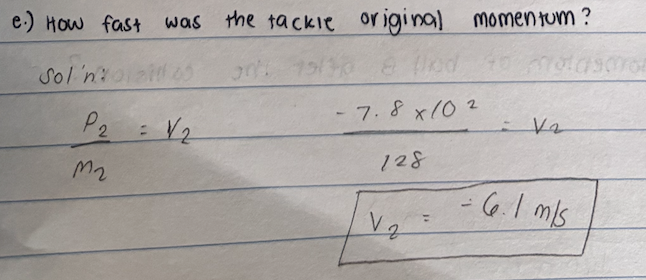 e.) How fast was the tackle original momentum?
Sol'n:
P2 / m2 = V2
-7.8 x 10² / 128 = V2
V2 = -6.1 m/s